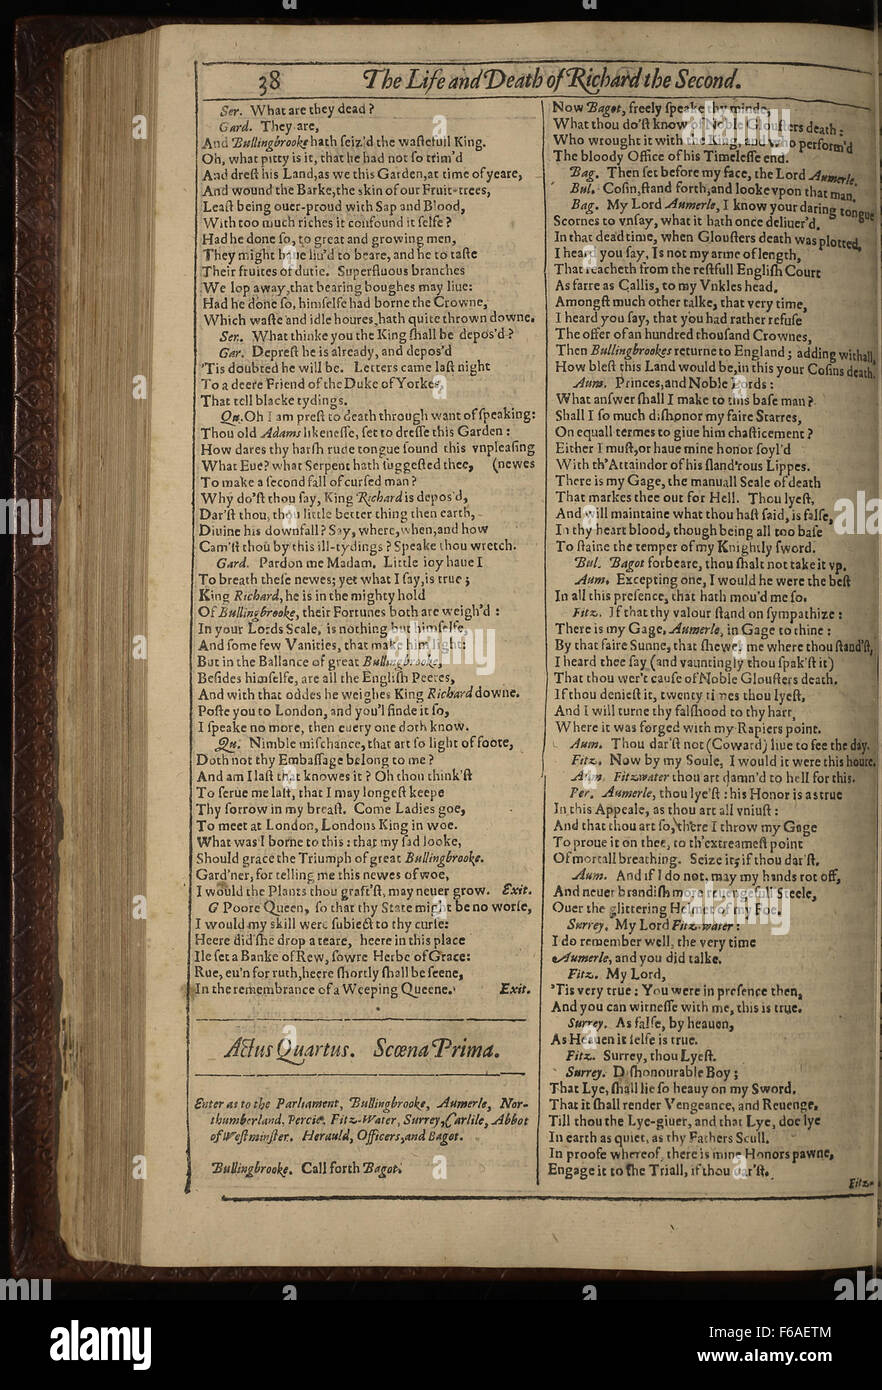 38 The Life and Death of Richard the Second.
Ser. What are they dead ?
Gard. They are,
And Bullingbrooke hath ſeiz'd the waſtefull King.
Oh, what pitty is it, that he had not ſo trim'd
And dreſt his Land, as we this Garden, at time of yeare,
And wound the Barke, the skin of our Fruit-trees,
Leaſt being ouer-proud with Sap and Blood,
With too much riches it confound it ſelfe ?
Had he done ſo, to great and growing men,
They might haue liu'd to beare, and he to taſte
Their fruites of dutie. Superfluous branches
We lop away, that bearing boughes may liue:
Had he done ſo, himſelfe had borne the Crowne,
Which waſte and idle houres, hath quite thrown downe.
Ser. What thinke you the King ſhall be depos'd ?
Gar. Depreſt he is already, and depos'd
'Tis doubted he will be. Letters came laſt night
To a deere Friend of the Duke of Yorkes,
That tell blacke tydings.
Qu. Oh I am preſt to death through want of ſpeaking:
Thou old Adams likeneſſe, ſet to dreſſe this Garden :
How dares thy harſh rude tongue ſound this vnpleaſing
What Eue? what Serpent hath ſuggeſted thee, (newes
To make a ſecond fall of curſed man ?
Why do'ſt thou ſay, King Richard is depos'd,
Dar'ſt thou, thou little better thing then earth,
Diuine his downfall ? Say, where, when, and how
Cam'ſt thou by this ill-tydings ? Speake thou wretch.
Gard. Pardon me Madam. Little ioy haue I
To breath theſe newes; yet what I ſay, is true ;
King Richard, he is in the mighty hold
Of Bullingbrooke, their Fortunes both are weigh'd :
In your Lords Scale, is nothing but himſelfe,
And ſome few Vanities, that make him light:
But in the Ballance of great Bullingbrooke,
Beſides himſelfe, are all the Engliſh Peeres,
And with that oddes he weighes King Richard downe.
Poſte you to London, and you'l finde it ſo,
I ſpeake no more, then euery one doth know.
Qu. Nimble miſchance, that art ſo light of foote,
Doth not thy Embaſſage belong to me ?
And am I laſt that knowes it ? Oh thou think'ſt
To ſerue me laſt, that I may longeſt keepe
Thy ſorrow in my breaſt. Come Ladies goe,
To meet at London, Londons King in woe.
What was I borne to this : that my ſad looke,
Should grace the Triumph of great Bullingbrooke.
Gard'ner, for telling me this newes of woe,
I would the Plants thou graft'ſt, may neuer grow. Exit.
G Poore Queen, ſo that thy State might be no worſe,
I would my skill were ſubiect to thy curſe:
Heere did ſhe drop a teare, heere in this place
Ile ſet a Banke of Rew, ſowre Herbe of Grace:
Rue, eu'n for ruth, heere ſhortly ſhall be ſeene,
In the remembrance of a Weeping Queene. Exit.
Actus Quartus. Scœna Prima.
Enter as to the Parliament, Bullingbrooke, Aumerle, Nor-
thumberland, Percie, Fitz-Water, Surrey, Carlile, Abbot
of Weſtminſter. Herauld, Officers, and Bagot.
Bullingbrooke. Call forth Bagot.
Now Bagot, freely ſpeake thy minde,
What thou do'ſt know of Noble Glouſters death :
Who wrought it with the King, and who perform'd
The bloody Office of his Timeleſſe end.
Bag. Then ſet before my face, the Lord Aumerle.
Bul. Coſin, ſtand forth, and looke vpon that man.
Bag. My Lord Aumerle, I know your daring tongue
Scornes to vnſay, what it hath once deliuer'd.
In that dead time, when Glouſters death was plotted,
I heard you ſay, Is not my arme of length,
That reacheth from the reſtfull Engliſh Court
As farre as Callis, to my Vnkles head.
Amongſt much other talke, that very time,
I heard you ſay, that you had rather refuſe
The offer of an hundred thouſand Crownes,
Then Bullingbrookes returne to England ; adding withall,
How bleſt this Land would be, in this your Coſins death.
Aum. Princes, and Noble Lords :
What anſwer ſhall I make to this baſe man ?
Shall I ſo much diſhonor my faire Starres,
On equall termes to giue him chaſticement ?
Either I muſt, or haue mine honor ſoyl'd
With th'Attaindor of his ſland'rous Lippes.
There is my Gage, the manuall Seale of death
That markes thee out for Hell. Thou lyeſt,
And will maintaine what thou haſt ſaid, is falſe,
In thy heart blood, though being all too baſe
To ſtaine the temper of my Knightly ſword.
Bul. Bagot forbeare, thou ſhalt not take it vp.
Aum. Excepting one, I would he were the beſt
In all this preſence, that hath mou'd me ſo.
Fitz. If that thy valour ſtand on ſympathize :
There is my Gage, Aumerle, in Gage to thine :
By that faire Sunne, that ſhewes me where thou ſtand'ſt,
I heard thee ſay (and vauntingly thou ſpak'ſt it)
That thou wer't cauſe of Noble Glouſters death.
If thou denieſt it, twenty times thou lyeſt,
And I will turne thy falſhood to thy hart,
Where it was forged with my Rapiers point.
Aum. Thou dar'ſt not (Coward) liue to ſee the day.
Fitz. Now by my Soule, I would it were this houre.
Aum. Fitzwater thou art damn'd to hell for this.
Per. Aumerle, thou lye'ſt : his Honor is as true
In this Appeale, as thou art all vniuſt :
And that thou art ſo, there I throw my Gage
To proue it on thee, to th'extreameſt point
Of mortall breathing. Seize it, if thou dar'ſt.
Aum. And if I do not, may my hands rot off,
And neuer brandiſh more reuengefull Steele,
Ouer the glittering Helmet of my Foe.
Surrey. My Lord Fitz-water :
I do remember well, the very time
Aumerle, and you did talke.
Fitz. My Lord,
'Tis very true : You were in preſence then,
And you can witneſſe with me, this is true.
Surrey. As falſe, by heauen,
As Heauen it ſelfe is true.
Fitz. Surrey, thou Lyeſt.
Surrey. Diſhonourable Boy ;
That Lye, ſhall lie ſo heauy on my Sword,
That it ſhall render Vengeance, and Reuenge,
Till thou the Lye-giuer, and that Lye, doe lye
In earth as quiet, as thy Fathers Scull.
In proofe whereof, there is mine Honors pawne,
Engage it to the Triall, if thou dar'ſt.
Fitz.
alamy
Image ID: F6AETM
www.alamy.com